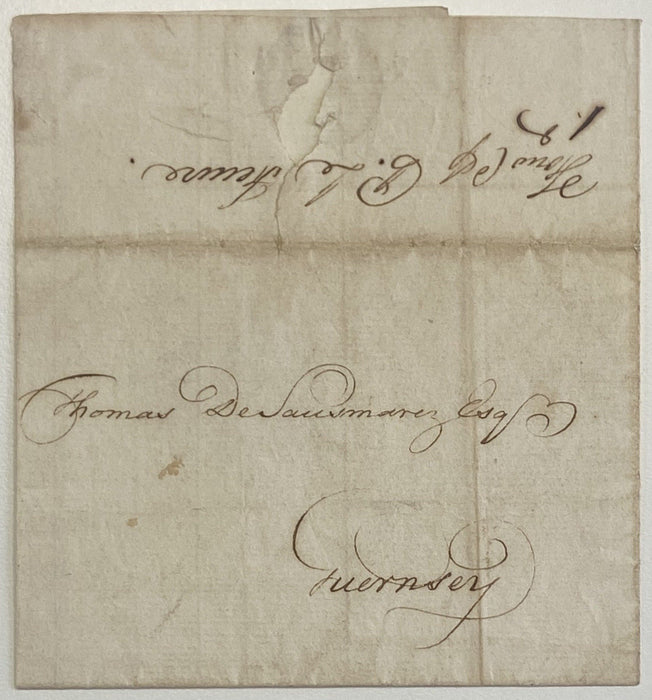 Thomas De Sausmarez Esqr
Guernsey
P. Le